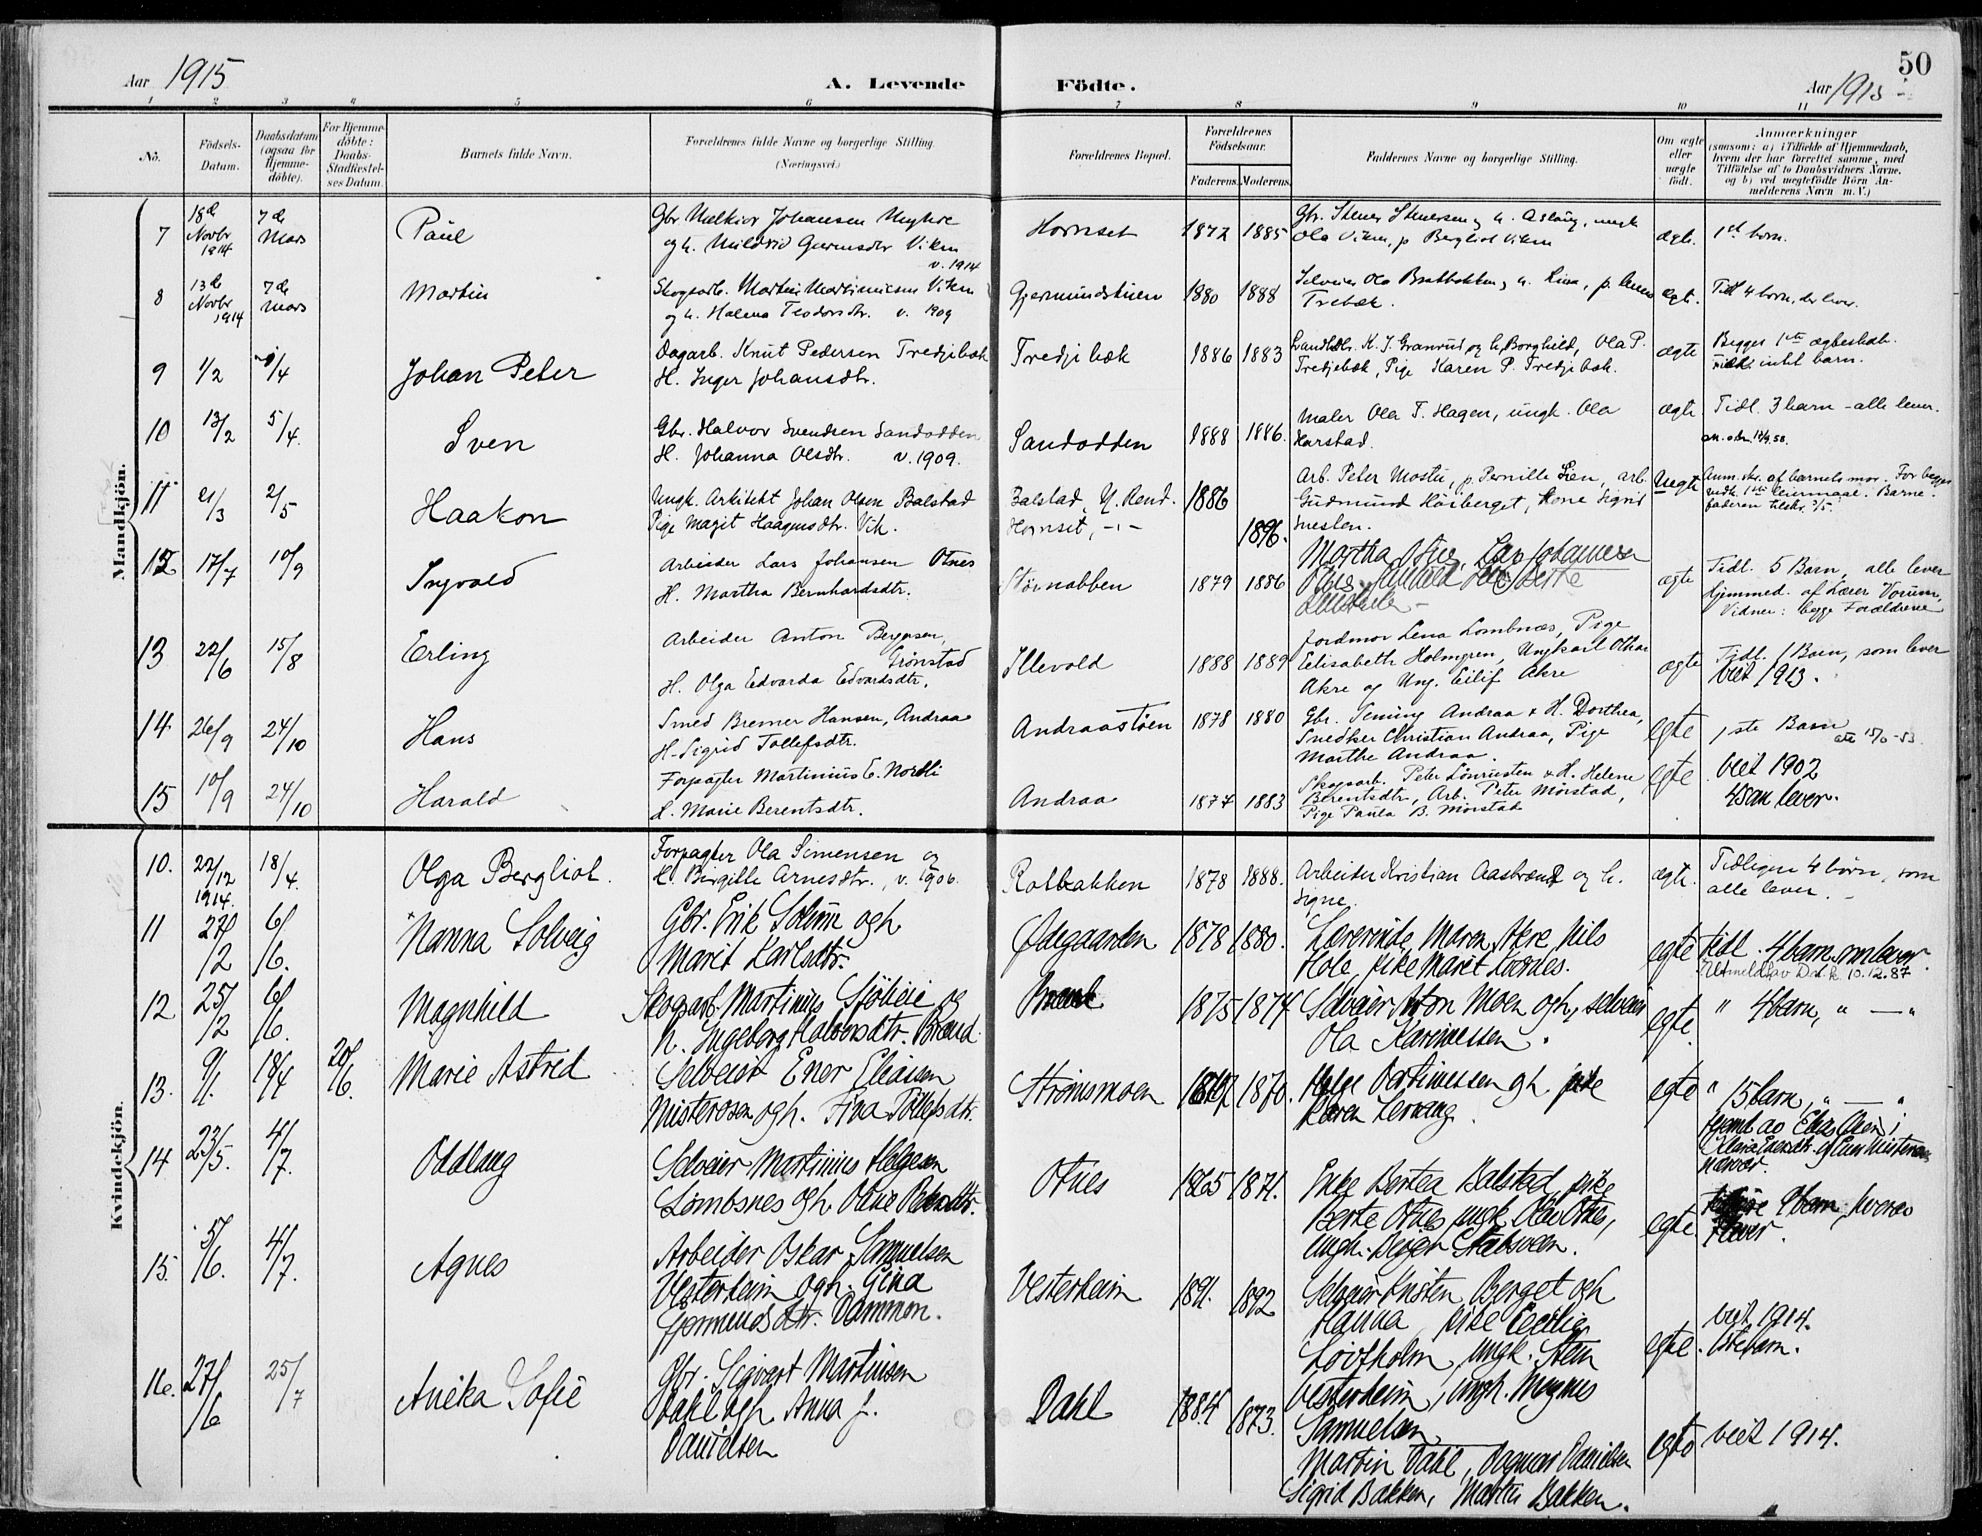 50
Aar 1915 A. Levende Födte. Aar 1915
1 2 3 4 5 6 7 8 9 10 11
No.
Födsels-Datum.
Daabsdatum (ogsaa for Hjemme-döbte).
For Hjemme-döbte: Daabs-Stadfæstel-ses Datum.
Barnets fulde Navn.
Forældrenes fulde Navne og borgerlige Stilling.
(Næringsvei.)
Forældrenes Bopæl.
Forældrenes Födselsaar.
Faderens. Moderens.
Faddernes Navne og borgerlige Stilling.
Om ægte eller uægte födt.
Anmærkninger
(saasom: a) i Tilfælde af Hjemmedaab,
hvem der har forrettet samme, med
Tilföielse af to Daabsvidners Navne.
og b) ved uægtefödte Börn An-
melderens Navn m. V.)
Mandkjön.
7 18de Novbr 1914 7de Mars Paul
Gbr Melkior Johansen
og h. Mildrid Gurmsdtr Viken
v. 1914
Hornset 1872 1885
Gbr. Stener Stenersen, h. Aslaug, ungk
Ola Viken, p Bergliot Viken
ægte. 1ste barn.
8 13de Novbr 1914 7de Mars Martin
Skogsarb. Martin Martiniusen Viken
og h. Halena Teodorsdtr. v. 1909
Gjermundstuen 1880 1888
Selveier Ola Bratbakken, h.
Trebæk.
ægte. Tidl 4 barn, der lever.
9 1/2 /4 Johan Peter
Dagarb. Knut Pedersen Tredjebæk
H. Inger Johansdtr.
Tredjebæk 1886 1883
Landhdlr. K. J. Granrud og h. Borghild, Ola P.
Tredjebæk, Pige Karen P. Tredjebæk.
ægte Begges 1ste ægteskab.
intet barn.
10 13/2 5/4. Sven
Gbr. Halvor Svendsen Sandodden
H. Johanna Olsdtr. v. 1909.
Sandodden 1888 1886.
Maler Ola T. Hagen, ungk. Ola
Harstad.
ægte Tidl. 3 barn - alle lever.
11 21/3 2/5 Haakon
Ungk. Arkitekt Johan Olsen Balstad
Pige Magit Haagensdtr. Vik.
Balstad, Y. Rend.
Hornset, -"-
1886 1896.
Arb. Peter Mostu, p. Pernille Lien, arb
Gudmund Kårberget, Kone Sigrid
Uegte Anm. skr. af barnets mor. For begge
1ste leiermaal. Barne-
faderen tilskr. 3/5.
12 17/7 10/9 Ingvald
Arbeider Lars Johansen Otnes
H. Martha Bernhardsdtr.
Størnabben 1879 1886
Martha Otnes, Lars Johannesen
Otnes,
ægte Tidl. 5 Barn, alle lever
hjemmed. af Lærer Vorum,
Vidner: begge Forældrene
13 22/6 15/8 Erling
Arbeider Anton Bergersen,
Grönstad
H. Olga Edvarda Edvardsdtr.
Illevold 1888 1889
Jordmor Lena Lombnæs, Pige
Elisabeth Holmgren, Ungkarl Othar
Akre og Ung. Eilif Akre
ægte Tidl. 1 Barn, som lever
Viet 1913.
14 26/9 24/10 Hans
Smed Bremer Hansen, Andraa
H. Sigrid Tollefsdtr.
Andraastøen 1878 1880
Gbr. Sening Andraa & H. Dorthea,
Snedker Christian Andraa, Pige
Marthe Andraa.
egte 1ste Barn
15 10/9 24/10 Harald
Forpagter Martinius E. Nordli
H. Marie Berentsdtr.
Andraa 1874 1883
Skogsarb. Peter Lönrusten & H. Helene
Berentsdtr, Arb. Peter Morstad,
Pige Paula B. Morstad
egte Viet 1902
4 barn lever.
Kvindekjön.
10. 22/12 1914. 18/4. Olga Bergliot.
Forpagter Ola Simensen og
H. Birgitte Arnesdtr., v. 1906.
Rolbakken 1878 1888.
Arbeider Kristian Aasbrænd og h.
Signe.
ægte. Tidligere 4 börn, som
alle lever. -
11 27/12 6/6. Nanna Solveig
Gbr. Erik Solum og h
Marit Karlsdtr.
Ødegaarden 1878 1880.
Lærerinde Maren Akre Nils
Hole, pike Marit Lornes.
egte tidl. 4 barn, som lever.
10.12.87
12 25/12 6/6. Magnhild
Skogsarb. Martinius Sjölie og
h. Ingeborg Halvorsdtr. Brænd.
Brænd 1875 1874
Selveier Anton Moen og h, selveier
Ola Karinessen.
egte. " 4 barn, " — "
13. 9/1. 18/4 20/6. Marie Astrid
Selveier Ener Eliasen
Misterosen og h. Fina Tollefsdtr.
Strömsmoen 1867 1870.
Helge Oertinessen og h. pike
Karen Lervang.
egte " 15 barn, " — "
Hjemd. av
14 23/5. 4/7. Oddlaug
Selveier Martinus Helgesen
Lombsnes og h Oline Pedersdtr.
Otnes 1865 1871.
Enke Bertea Balstad, pike
Berte Otnes, ungk. Olav Otnes,
ungk. Birger Stabsveen.
egte. 9 barn, hvorav
lever.
15. 5/6. 4/7. Agnes
Arbeider Oskar Samuelsen
Vesterheim og h. Gina
Gjermundsdtr. Dammen.
Vesterheim 1891. 1892
Selveier Kristen Berget og h
Hanna, pike Cecilie
Lovtholm, ungk. Sten
Vesterheim, ungk. Magnus
Samuelsen
egte. viet 1914.
1ste barn.
16. 27/6 25/7 Anéka Sofie
Gbr. Sigvart Martinsen
Dahl og h. Anna J.
Danielsen
Dahl 1884 1873.
Martin Dahl, Dagmar Danielsen
Sigrid Bakken, Martin Bakken.
egte viet 1914.